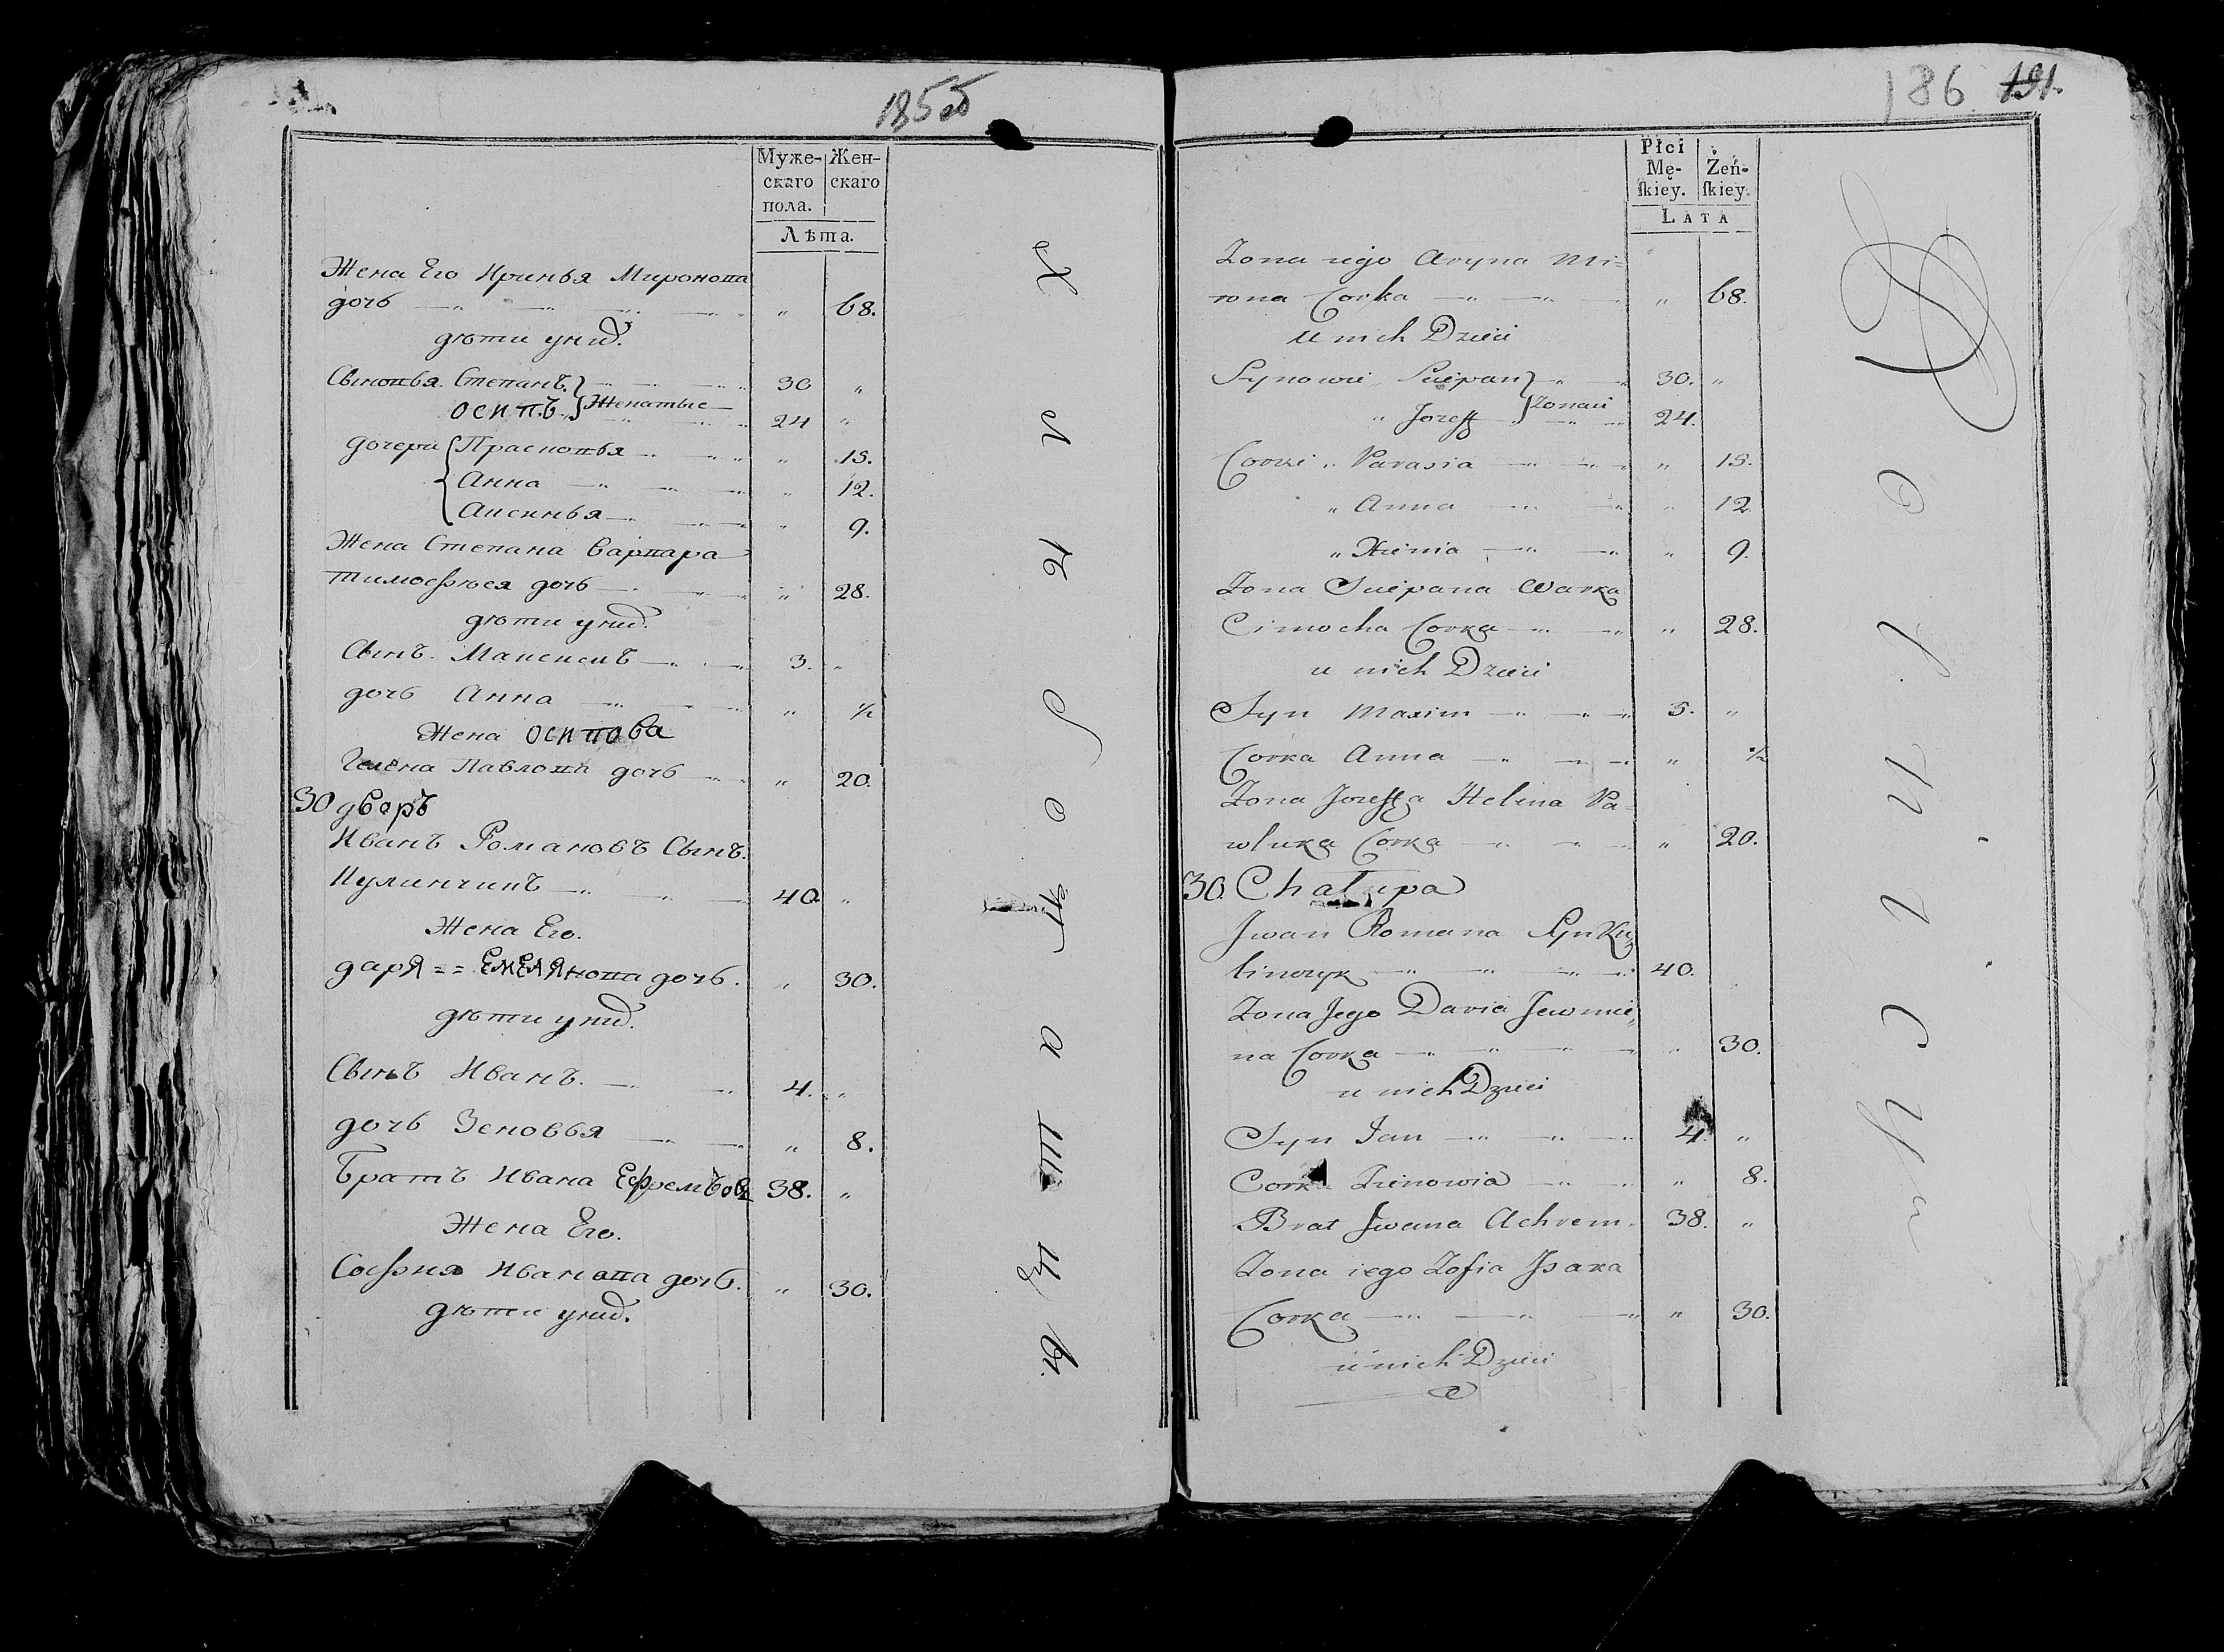 185 об
Муже-
скаго
пола.
Жен-
скаго
Лѣта.
Жена Его Иринья Миронова
дочь 68.
дѣти у нид.
Сыновья. Степанъ. 30
осипъ. Женатые 24
дочери Прасковья 15.
Анна 12.
Аксинья 9.
Жена Степана варвара
тимофѣея дочь 28.
дѣти у нид.
Сынъ. Максимъ 3.
дочь Анна 1/2
Жена осипова
Гелена Павлова дочь 20.
30 дворъ
Иванъ Романовъ Сынъ.
Кулинчикъ 40.
Жена Его.
даря = = Емелянова дочь. 30.
дѣти у нид.
Сынъ Иванъ. 4.
дочь Зеновья 8.
Братъ Ивана 38.
Жена Его.
София Иванова дочь. 30.
дѣти у нид.
186 191.
Płci
Mę-
ſkiey.
Żeń-
ſkiey.
LATA
Zona iego Aryna Mi=
rona Corka 68.
u nich Dzieci
Synowie Sciepan 30.
Jozeff Zonaci 24.
Corki Parasia 15.
Anna 12
Xienia 9.
Zona Sciepana Warka
Cimocha Corka 28.
u nich Dzieci
Syn Maxim 3.
Corka Anna 1/2
Zona Jozeffa Helena Pa
wluka Corka 20.
30. Chałupa
Jwan Romana Syn Ku
linczyk 40.
Zona Jego Daria Jewmie,
na Corka 30.
u nich Dzieci
Syn Jan 4.
Corka Zienowia 8.
Brat Jwana Achrem. 38.
Zona iego Zofia Jsaka
Corka 30.
u nich Dzieci